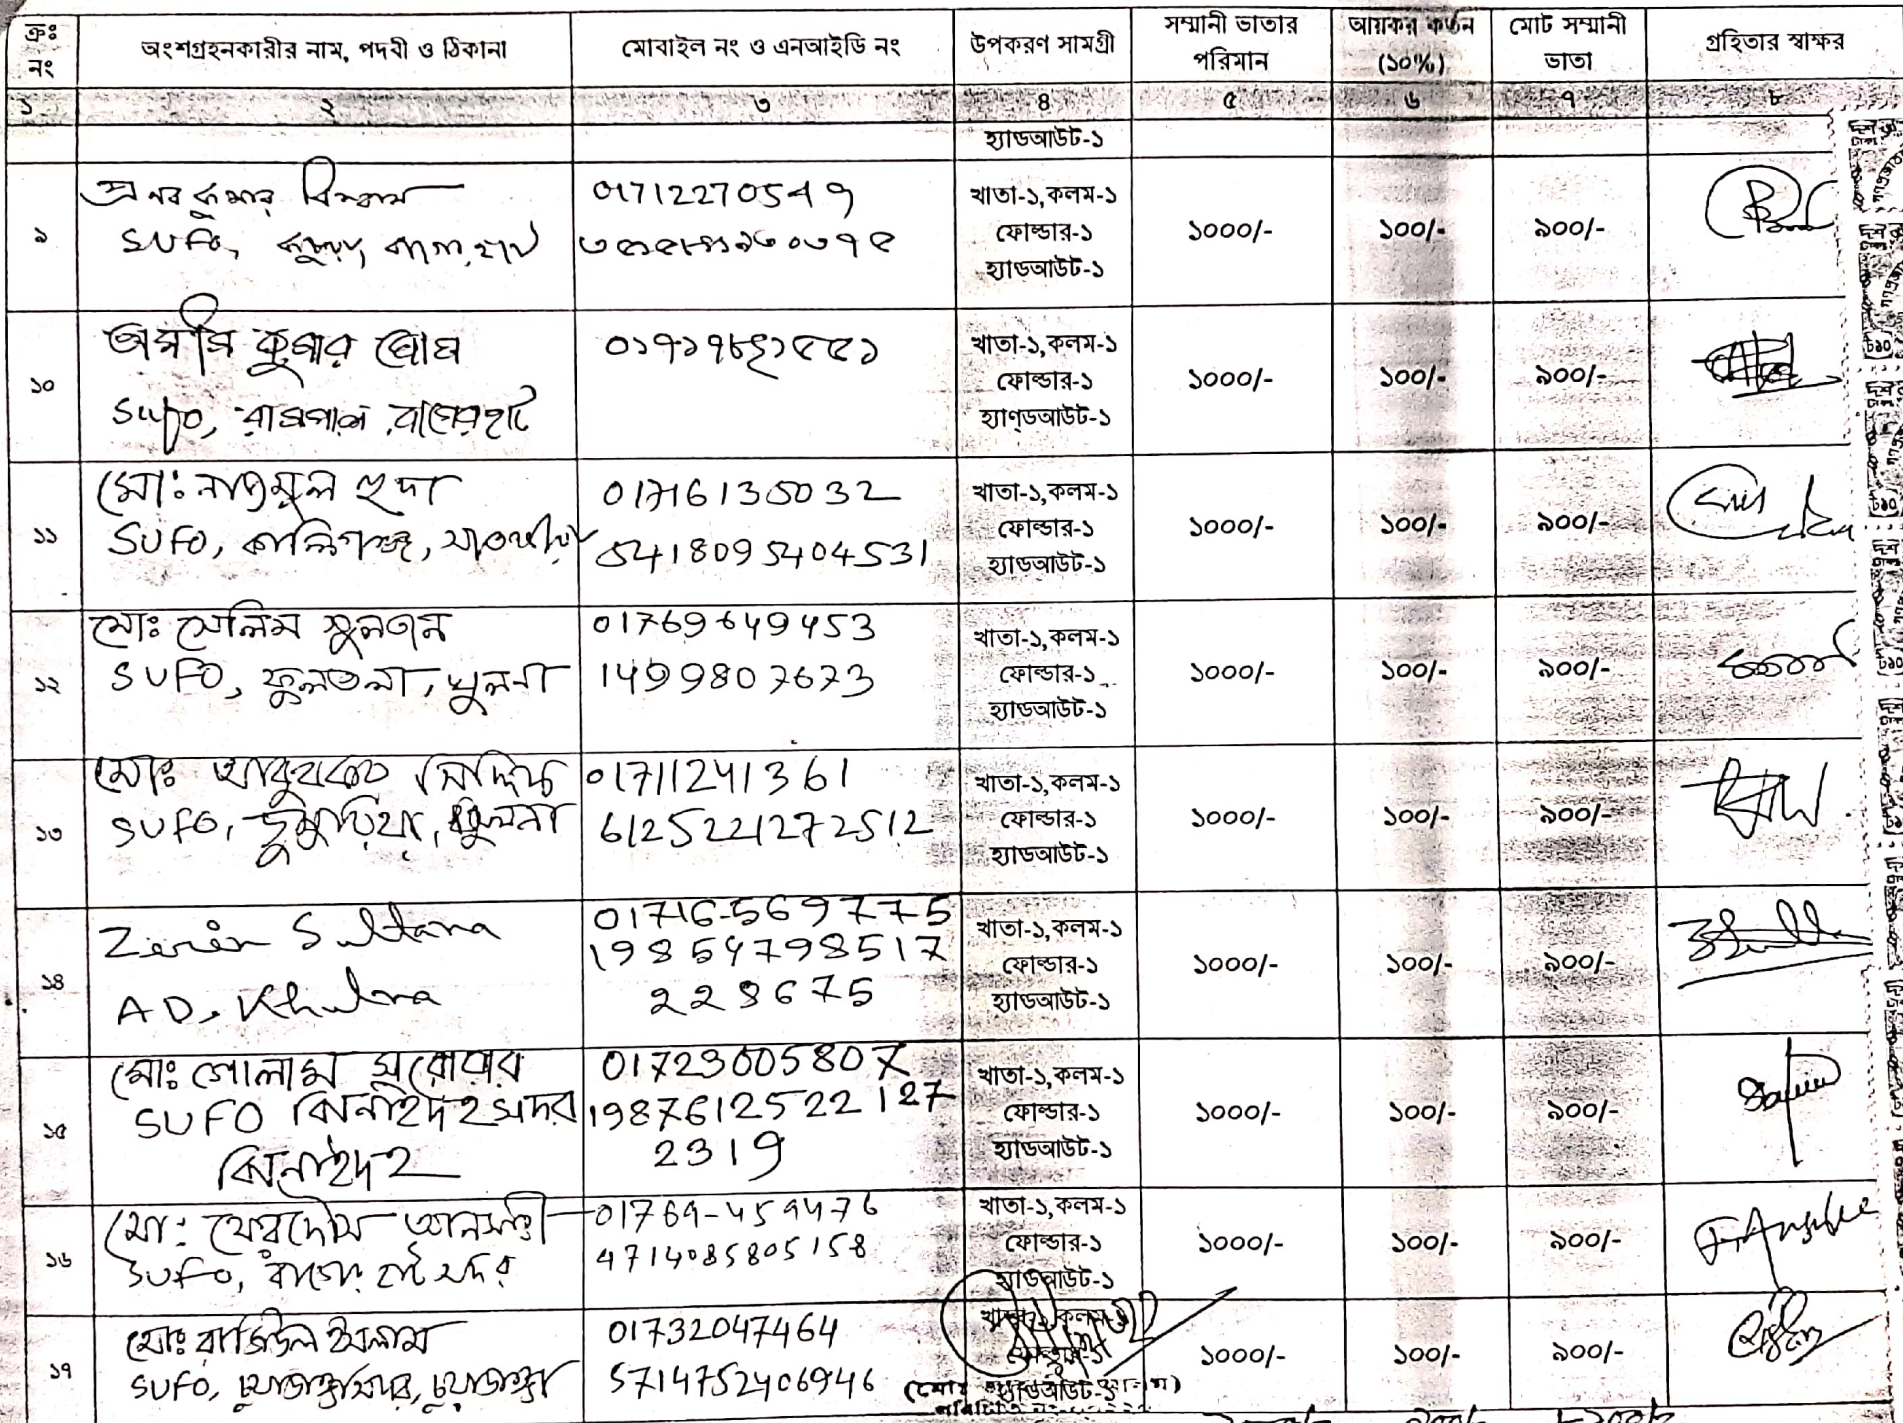 ক্রঃ নং
অংশগ্রহনকারীর নাম, পদবী ও ঠিকানা
মোবাইল নং ও এনআইডি নং
উপকরণ সামগ্রী
সম্মানী ভাতার পরিমান
আয়কর কর্তন (১০%)
মোট সম্মানী ভাতা
গ্রহিতার স্বাক্ষর
১ ২ ৩ ৪ ৫ ৬ ৭ ৮
হ্যাডআউট-১
৯
কুমার বিশ্বাস
SUFO,
01712270549
খাতা-১,কলম-১
ফোল্ডার-১
হ্যাডআউট-১
১০০০/- ১০০/- ৯০০/-
১০
কুমার ঘোষ
SUFO, রামপাল, বাগেরহাট
খাতা-১,কলম-১
ফোল্ডার-১
হ্যাণ্ডআউট-১
১০০০/- ১০০/- ৯০০/-
১১
মো: নাজমুল হুদা
SUFO, কালিগঞ্জ, সাতক্ষীরা
01716135032
5418095404531
খাতা-১,কলম-১
ফোল্ডার-১
হ্যাডআউট-১
১০০০/- ১০০/- ৯০০/-
১২
মোঃ সেলিম সুলতান
SUFO, ফুলতলা, খুলনা
01769649453
1499807673
খাতা-১,কলম-১
ফোল্ডার-১
হ্যাডআউট-১
১০০০/- ১০০/- ৯০০/-
১৩
মোঃ আবুবকর সিদ্দিক
SUFO, ডুমুরিয়া, খুলনা
01711241361
6125221272512
খাতা-১,কলম-১
ফোল্ডার-১
হ্যাডআউট-১
১০০০/- ১০০/- ৯০০/-
১৪
Zerin Sultana
AD, Khulna
01716-569775
19854798517
228675
খাতা-১,কলম-১
ফোল্ডার-১
হ্যাডআউট-১
১০০০/- ১০০/- ৯০০/-
১৫
মোঃ গোলাম সরোয়ার
SUFO ঝিনাইদহ সদর
ঝিনাইদহ
01723005807
1987612522127
2319
খাতা-১,কলম-১
ফোল্ডার-১
হ্যাডআউট-১
১০০০/- ১০০/- ৯০০/-
১৬
মো: ফেরদৌস আনসারী
SUFO, বাগেরহাট সদর
01769-459476
4714085805158
খাতা-১,কলম-১
ফোল্ডার-১
হ্যাডআউট-১
১০০০/- ১০০/- ৯০০/-
১৭
মোঃ রাজিউল ইসলাম
SUFO, চুয়াডাঙ্গা সদর, চুয়াডাঙ্গা
01732047464
5714752406946
খাতা-১,কলম-১
ফোল্ডার-১
হ্যাডআউট-১
১০০০/- ১০০/- ৯০০/-